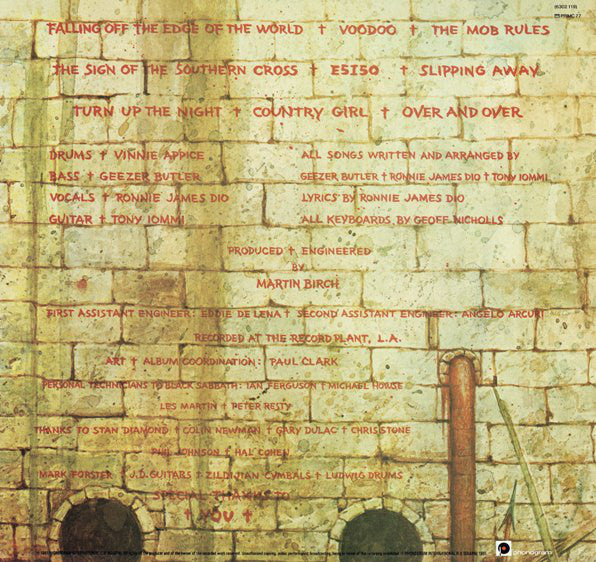 (6302 119)
PRIMC 77
FALLING OFF THE EDGE OF THE WORLD † VOODOO † THE MOB RULES
THE SIGN OF THE SOUTHERN CROSS † E5150 † SLIPPING AWAY
TURN UP THE NIGHT † COUNTRY GIRL † OVER AND OVER
DRUMS † VINNIE APPICE
BASS † GEEZER BUTLER
VOCALS † RONNIE JAMES DIO
GUITAR † TONY IOMMI
ALL SONGS WRITTEN AND ARRANGED BY
GEEZER BUTLER † RONNIE JAMES DIO † TONY IOMMI
LYRICS BY RONNIE JAMES DIO
ALL KEYBOARDS BY GEOFF NICHOLLS
PRODUCED † ENGINEERED
BY
MARTIN BIRCH
FIRST ASSISTANT ENGINEER: EDDIE DELENA † SECOND ASSISTANT ENGINEER: ANGELO ARCURI
RECORDED AT THE RECORD PLANT, L.A.
ART † ALBUM COORDINATION: PAUL CLARK
PERSONAL TECHNICIANS TO BLACK SABBATH: IAN FERGUSON † MICHAEL HOWSE
LES MARTIN † PETER RESTY
THANKS TO STAN DIAMOND † COLIN NEWMAN † GARY DULAC † CHRIS STONE
PHIL JOHNSON † HAL COHEN
MARK FORSTER † J.D. GUITARS † ZILDJIAN CYMBALS † LUDWIG DRUMS
SPECIAL THANKS TO
† YOU †
phonogram